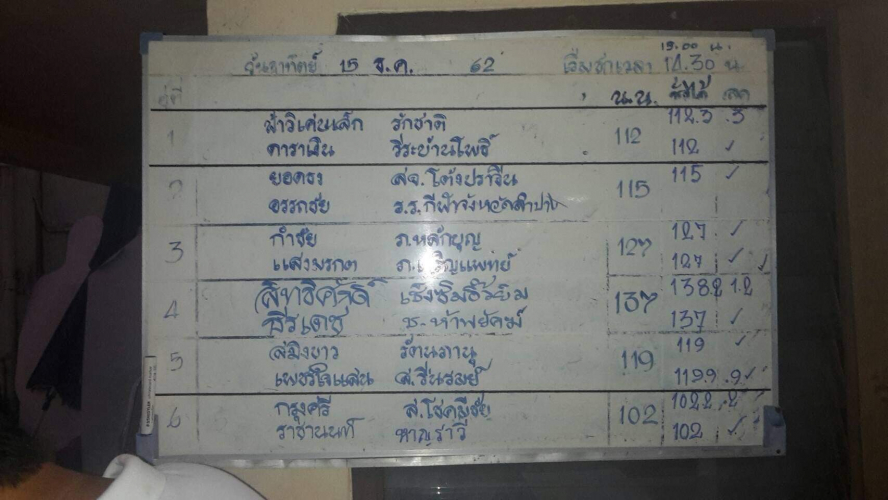 19.00 น.
วันอาทิตย์ 15 ธ.ค. 62 เริ่มชกเวลา 14.30 น.
คู่ที่ น.น. ชั่งได้
1 ฟ้าวิเศษเล็ก รักชาติ 112 112.3 .3
ดาราเงิน วีระบ้านโพธิ์ 112 ✓
2 ยอดธง ส.จ.โต้งปราจีน 115 115 ✓
อรรถชัย ร.ร.กีฬาจังหวัดลำปาง
3 กำชัย ภ.หลักบุญ 127 127 ✓
แสงมรกต ภ.เจริญแพทย์ 127 ✓
4 สิทธิศักดิ์ 137 138.2 1.2
ธีรเดช ช.ห้าพยัคฆ์ 137 ✓
5 สมิงขาว รัตนภานุ 119 119 ✓
เพชรใจแสน 119.9 .9 ✓
6 กรุงศรี ส.โชคมีชัย 102 102.2 .2 ✓
ราชานนท์ หาญราวี 102 ✓